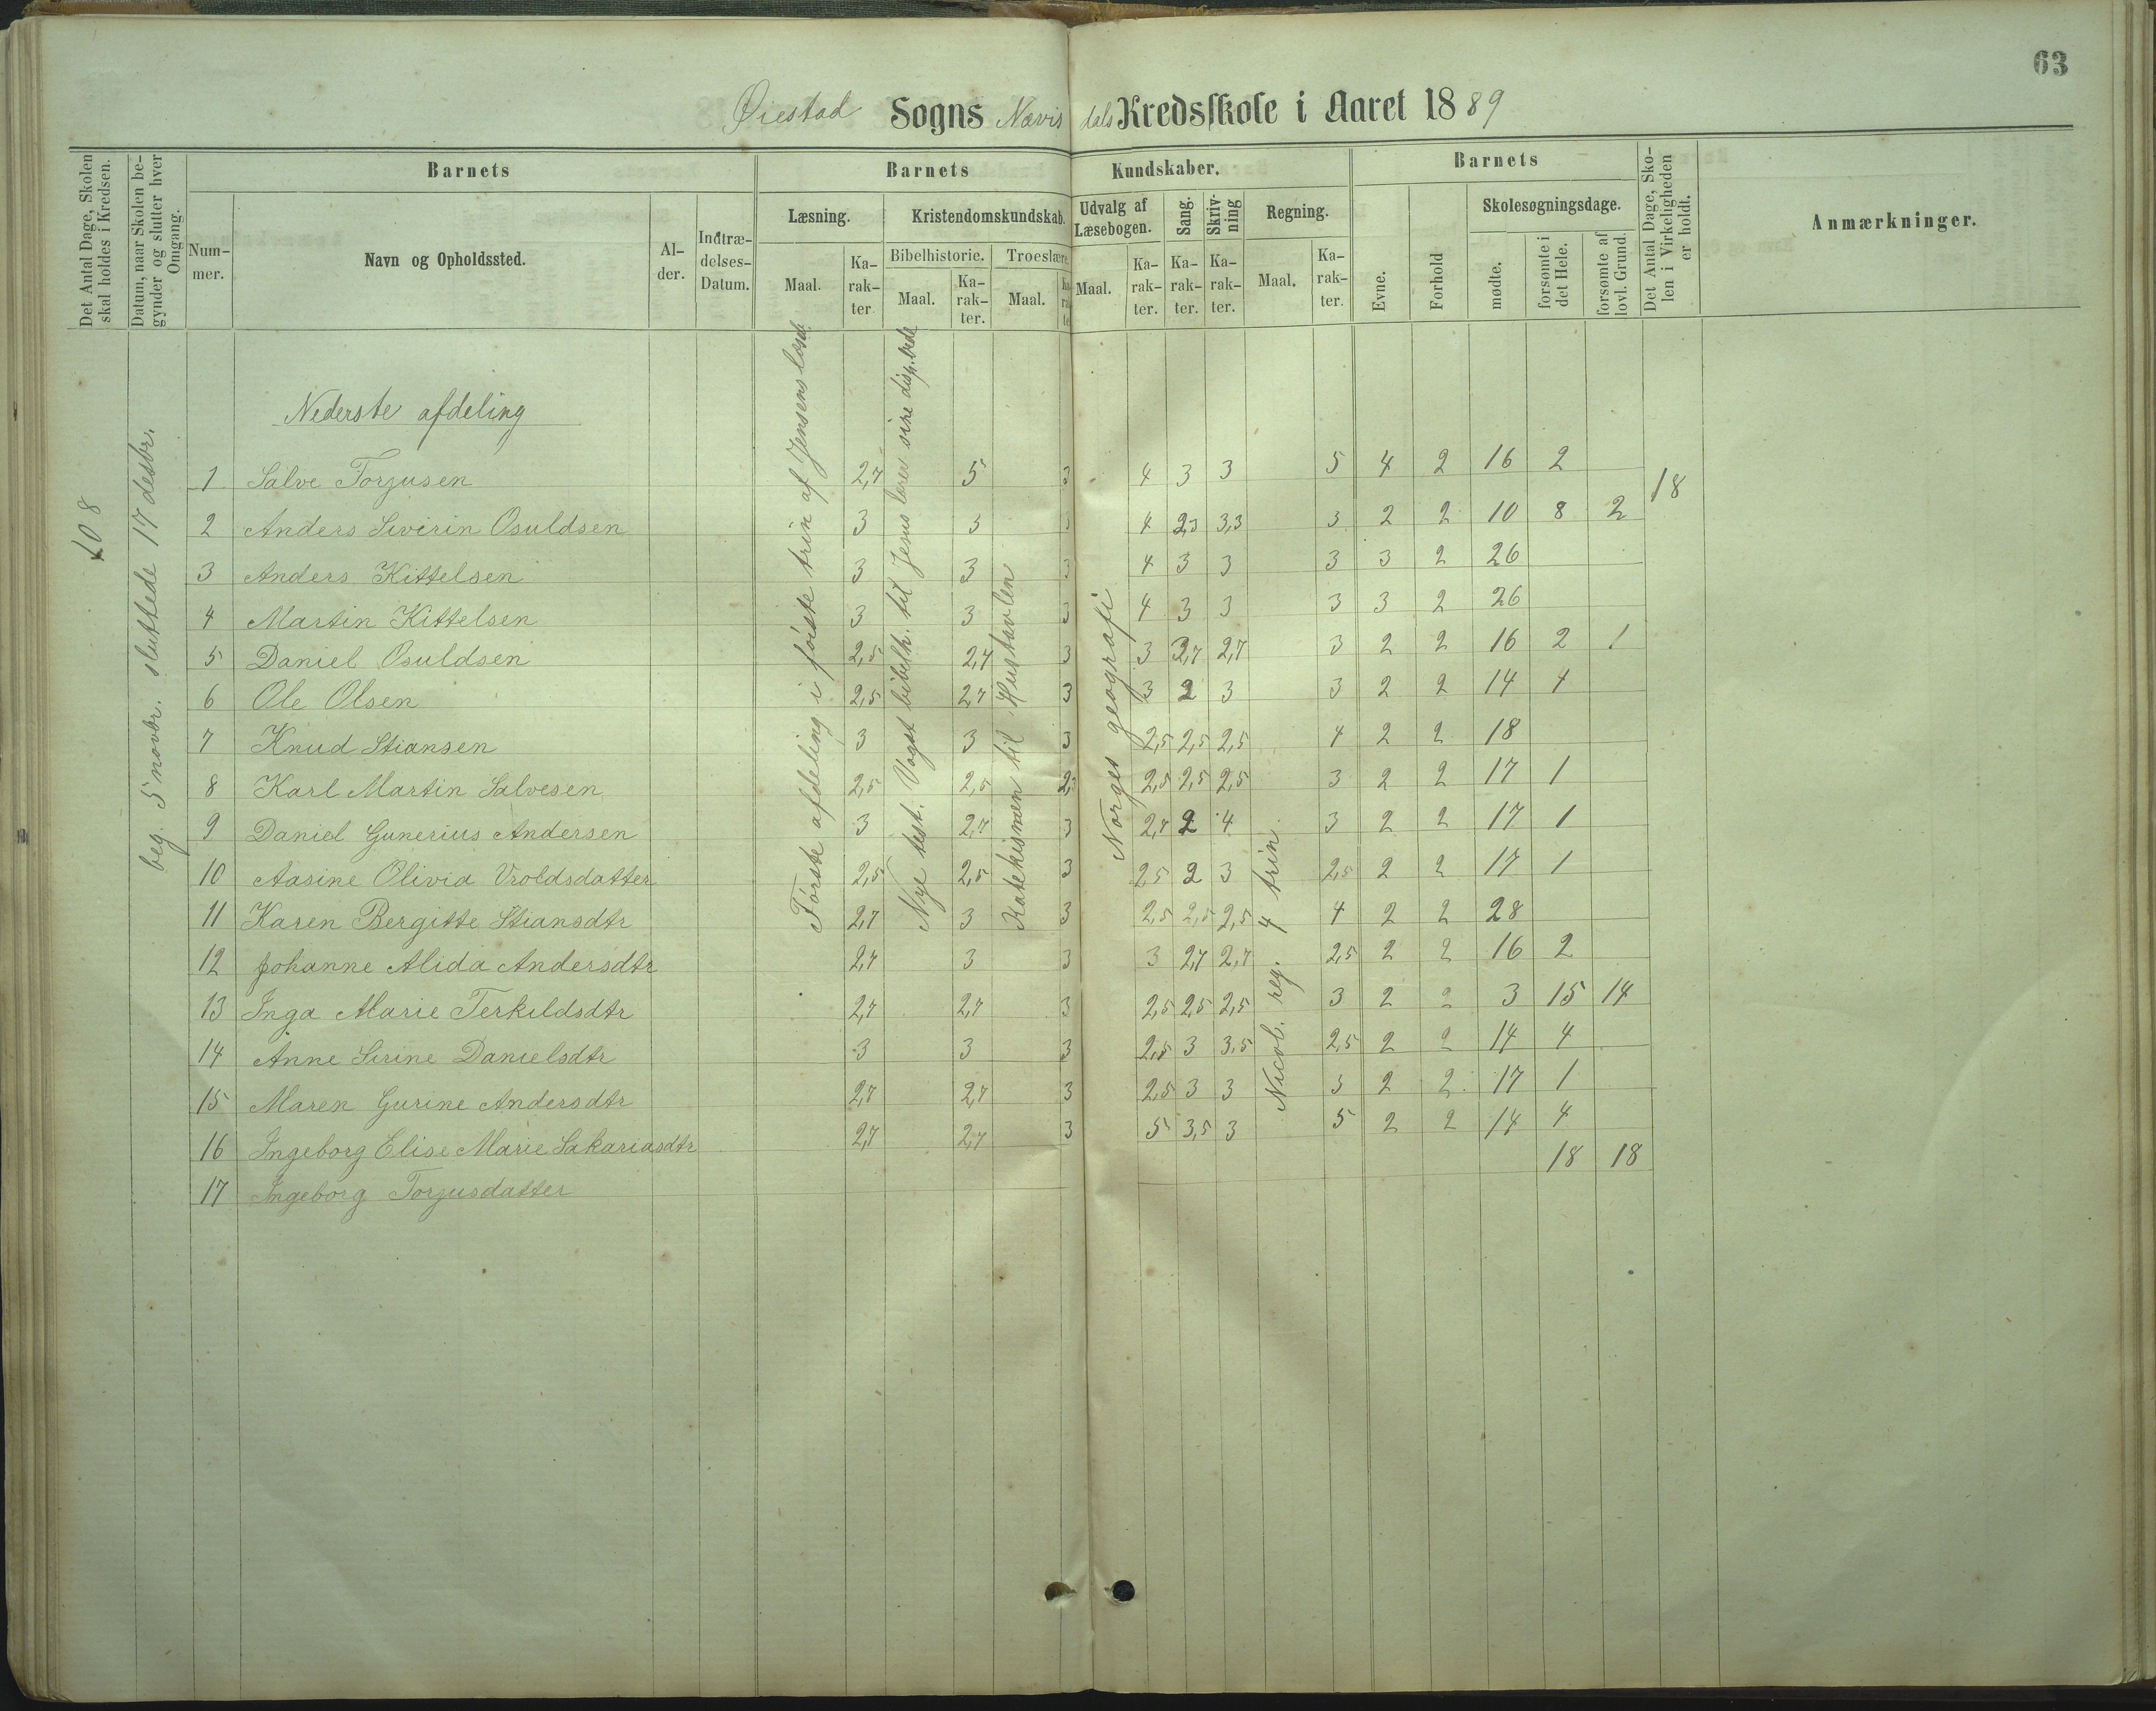 63
Øiestad Sogns Nævisdals Kredsskole i Aaret 1889
Det Antal Dage, Skolen skal holdes i Kredsen.
Datum, naar Skolen begynder og slutter hver Omgang.
Barnets
Barnets Kundskaber.
Barnets
Det Antal Dage, Skolen i Virkeligheden er holdt.
Anmærkninger.
Num-mer.
Navn og Opholdssted.
Al-der.
Indtræ-delses-Datum.
Læsning.
Kristendomskundskab.
Udvalg af Læsebogen.
Sang.
Skriv-ning
Regning.
Evne.
Forhold
Skolesøgningsdage.
Bibelhistorie.
Troeslære.
Maal.
Ka-rak-ter
Maal.
Ka-rak-ter.
Maal.
Maal.
Ka-rak-ter.
Ka-rak-ter.
Ka-rak-ter.
Maal.
Ka-rak-ter.
mødte.
forsømte i det Hele.
forsømte af lovl. Grund.
108
beg. 5 novbr. sluttede 17 desbr.
Første afdeling i første trin af Jensens læseb.
Nye test. Vogts bibelh. til Jesus lærer sine disp. bede
Katekismen til Hustavlen
Norges geografi
Nicol. reg. 4 trin
18
Nederste afdeling
1 Salve Torjusen 2,7 5 3 4 3 3 5 4 2 16 2
2 Anders Severin Osuldsen 3 3 3 4 2,3 3,3 3 2 2 10 8 2
3 Anders Kittelsen 3 3 3 4 3 3 3 3 2 26
4 Martin Kittelsen 3 3 3 4 3 3 3 3 2 26
5 Daniel Osuldsen 2,5 2,7 3 3 2,7 2,7 3 2 2 16 2 1
6 Ole Olsen 2,5 2,7 3 3 2 3 3 2 2 14 4
7 Knud Stiansen 3 3 3 2,5 2,5 2,5 4 2 2 18
8 Karl Martin Salvesen 2,5 2,5 2,5 2,5 2,5 3 2 2 17 1
9 Daniel Gunerius Andersen 3 2,7 3 2,7 2 4 3 2 2 17 1
10 Aasine Olivia Vroldsdatter 2,5 2,5 3 2,5 2 3 2,5 2 2 17 1
11 Karen Bergitte Stiansdtr 2,7 3 3 2,5 2,5 2,5 4 2 2 28
12 Johanne Alida Andersdtr 2,7 3 3 3 2,7 2,7 2,5 2 2 16 2
13 Inga Marie Terkildsdtr 2,7 2,7 3 2,5 2,5 2,5 3 2 2 3 15 14
14 Anne Serine Danielsdtr 3 3 3 2,5 3 3,5 2,5 2 2 14 4
15 Maren Gurine Andersdtr 2,7 2,7 3 2,5 3 3 3 2 2 17 1
16 Ingeborg Elise Marie Sakariasdtr 2,7 2,7 3 5 3,5 3 5 2 2 14 4
17 Ingeborg Torjusdatter 18 18